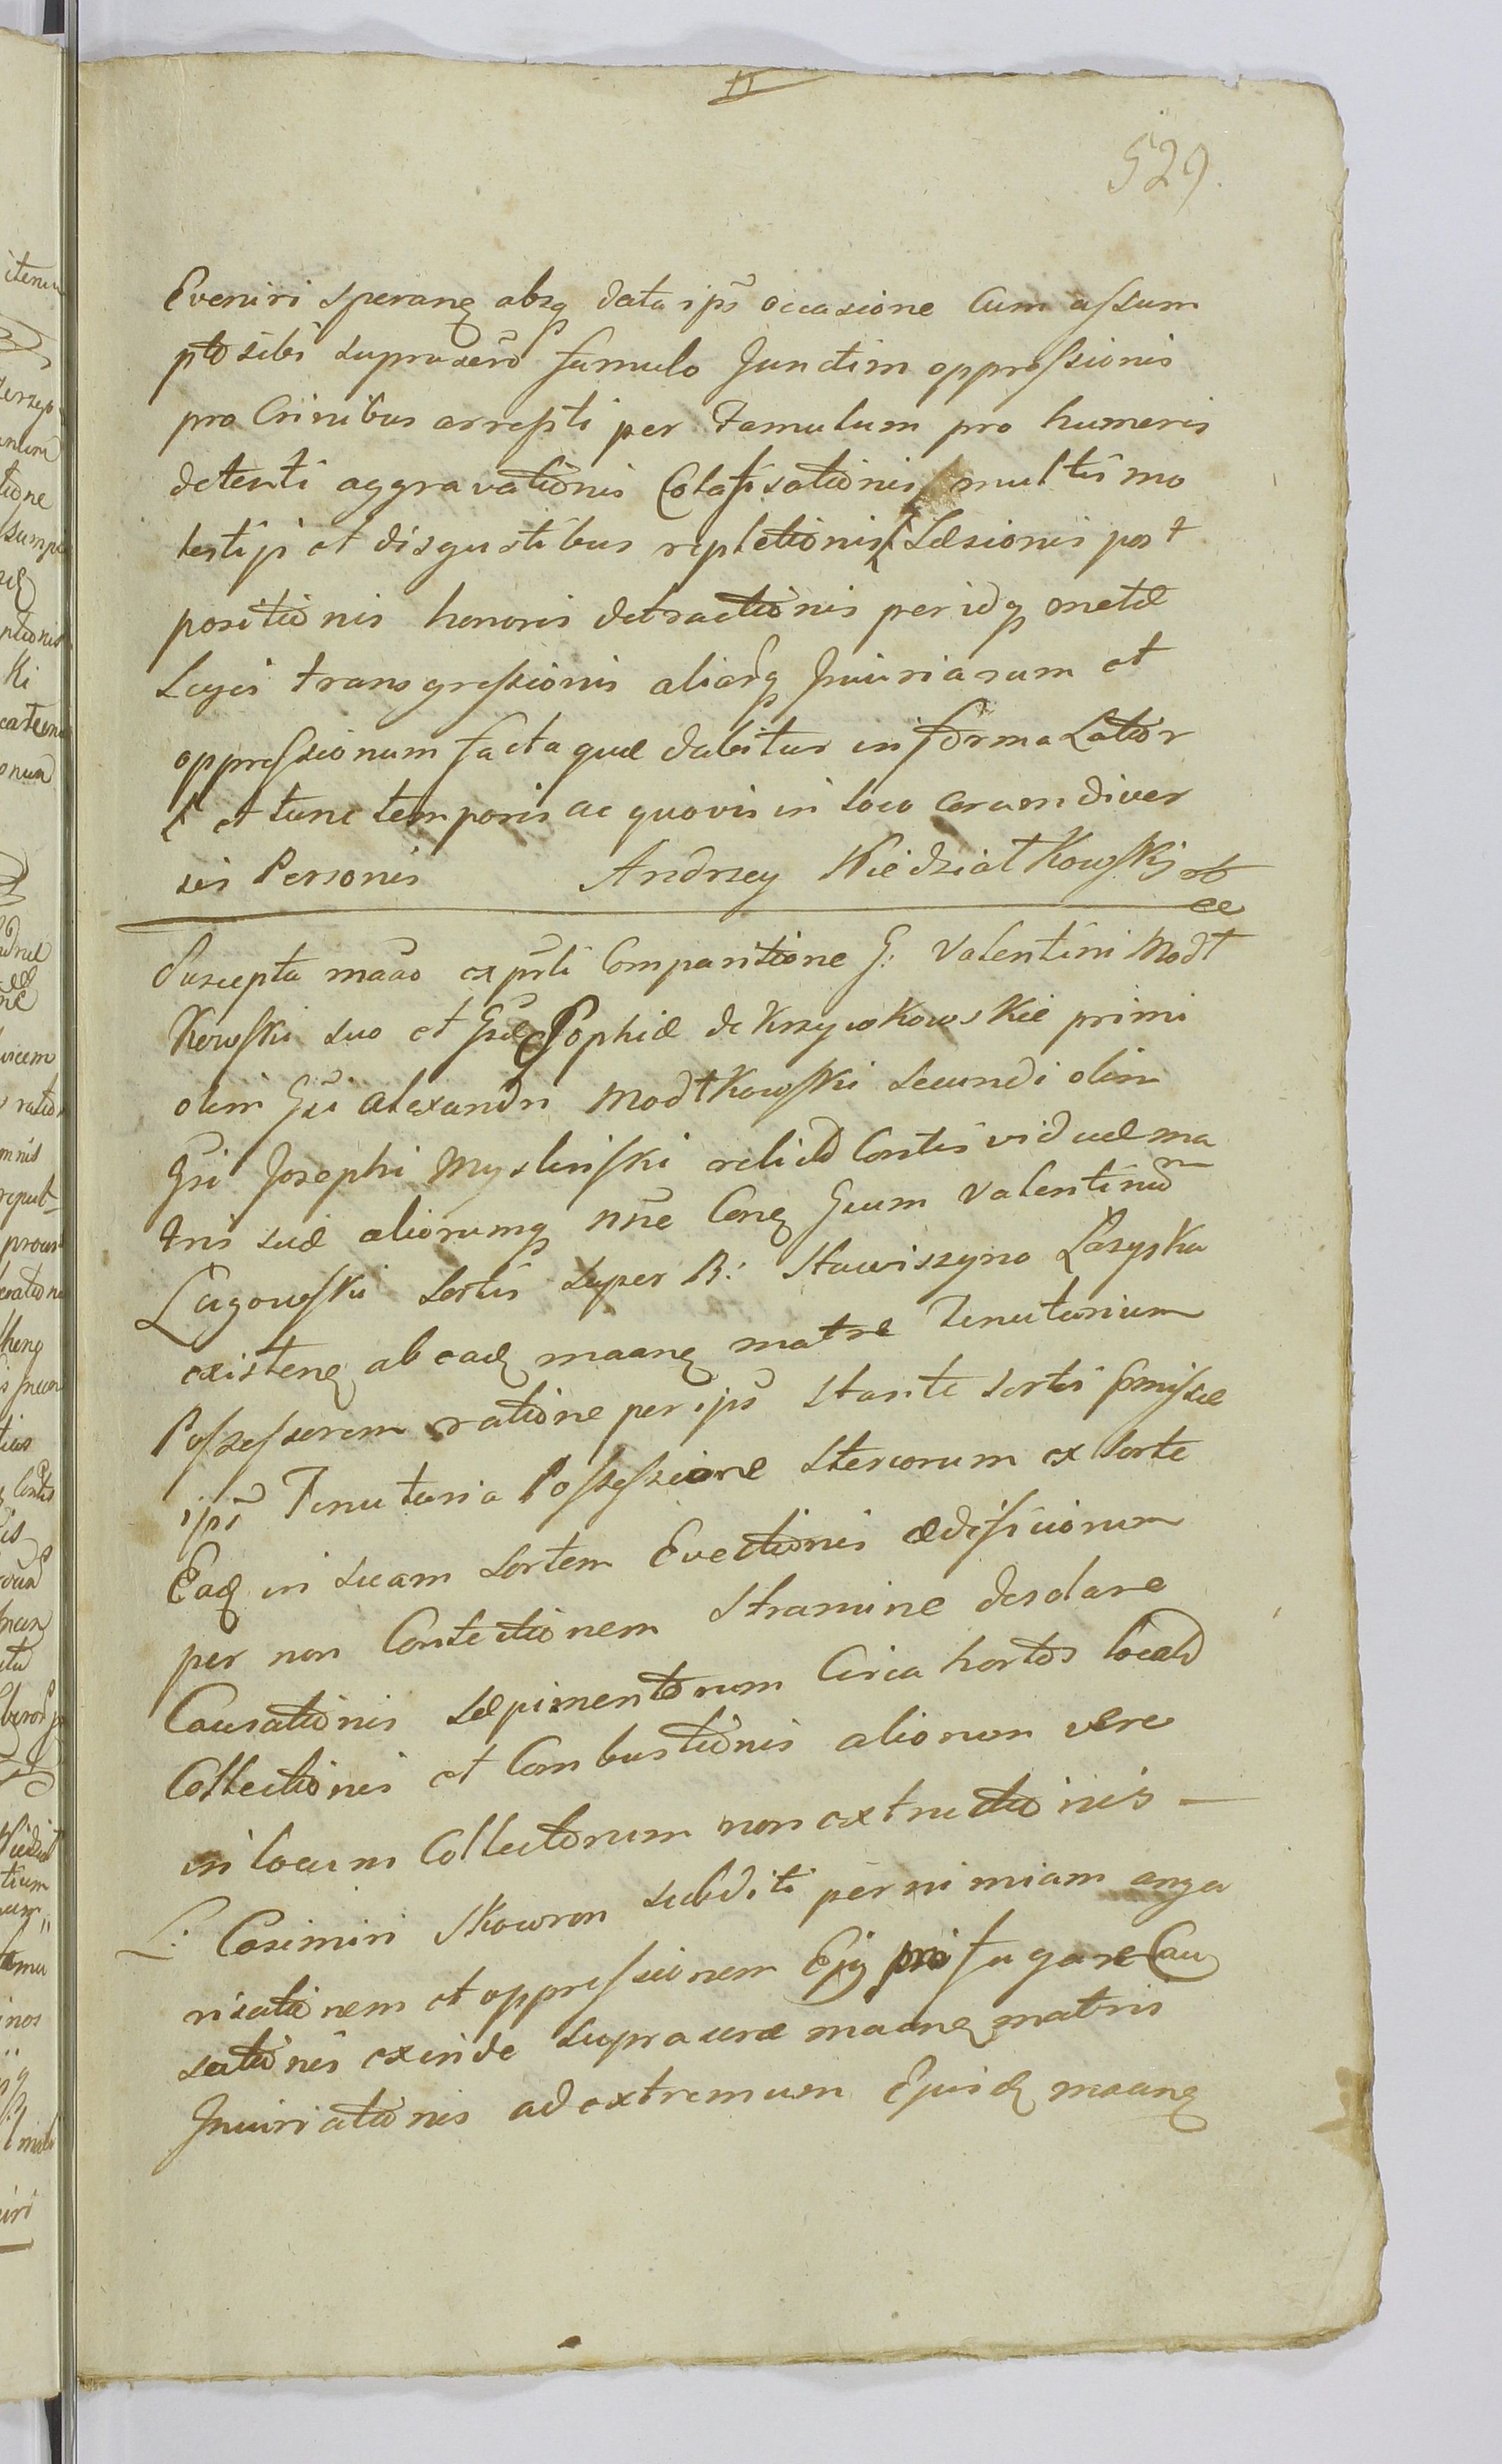 529.
Eveniri sperang absq data ips occasione Cum assum
pto sibi supraxero famulo Junctim oppressionis
pro Crinibus arrepti per Famulum pro humeris
detenti aggravationis Colaphisationis multis mo
lestijs et disgustibus repletionis Læsionis post
positionis honoris detractionis per idq metæ
Legis transgressionis aliarq Injuriarum et
oppressionum facta quæ dabitur in forma Latior
i et tunc temporis ac quovis in loco coram diver
sis Personis Andrzey Niedziałkowskj
Suscepta maão ex prti Comparitione G: Valentini Modł
Kowski suo et Gsæ Sophiæ de Krzywkowskie primi
olim Gsi Alexandri Modłkowski secundi olim
Gsi Josephi Mysliński relictæ Contis viduæ ma
tris suæ aliorumq nñe Cong Gsum Valentinum
Lugowski Sortis super B: Stawiszyno Łazyska
existeng ab eadq maang matre Tenutarium
Possessorem ratione per ips stante sortis pmissæ
ips Tenutaria Possessione Stercorum ex Sorte
Eadq in suam Sortem Evectionis ædificiorum
per non Contectionem Stramine desolare
Causationis sæpimentorum Circa hortos
Collectionis et Combustionis aliorum vero
in locum Collectorum non extructionis —
L: Casimiri Skowron subditi per nimiam anga
risationem et oppressionem Ejq profugare Cau
sationis exinde supraxeræ maang matris
Injuriationis ad extremum Ejusdq maang